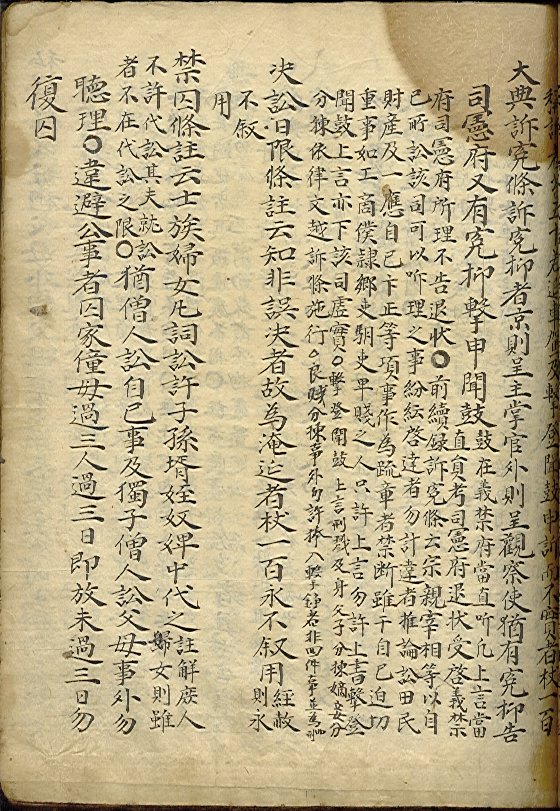 大典訴冤條訴冤抑者京則呈主掌官外則呈觀察使猶有冤抑告
司憲府又有冤抑擊申聞鼓鼓在義禁府當直所凡上言當
直員考司憲府退狀受啓義禁
府司憲府所理不告退狀○前續錄訴冤條云宗親宰相等以自
己所訟該司可以听理之事紛紜啓達者勿計違者推論訟田民
財産及一應自己卞正等項事作為疏章者禁斷雖干自己迫切
重事如工商僕隷鄕吏馹吏卑賤之人只許上言勿許上書擊登
聞鼓上言亦下該司虛實○擊登聞鼓上言刑戮及身父子分揀嫡妾分
分揀依律文越訴條施行○良賤分揀事外勿許捧入擊者非四件事並爲
決訟日限條註云知非誤決者故為淹延者杖一百永不叙用經赦
則永
不叙
用
禁囚條註云士族婦女凡詞訟許子孫壻姪奴婢中代之註解庶人
婦女則雖
不許代訟其夫就訟
者不在代訟之限○猶僧人訟自己事及獨子僧人訟父母事外勿
聽理○違避公事者囚家僮毋過三人過三日卽放未過三日勿
復囚